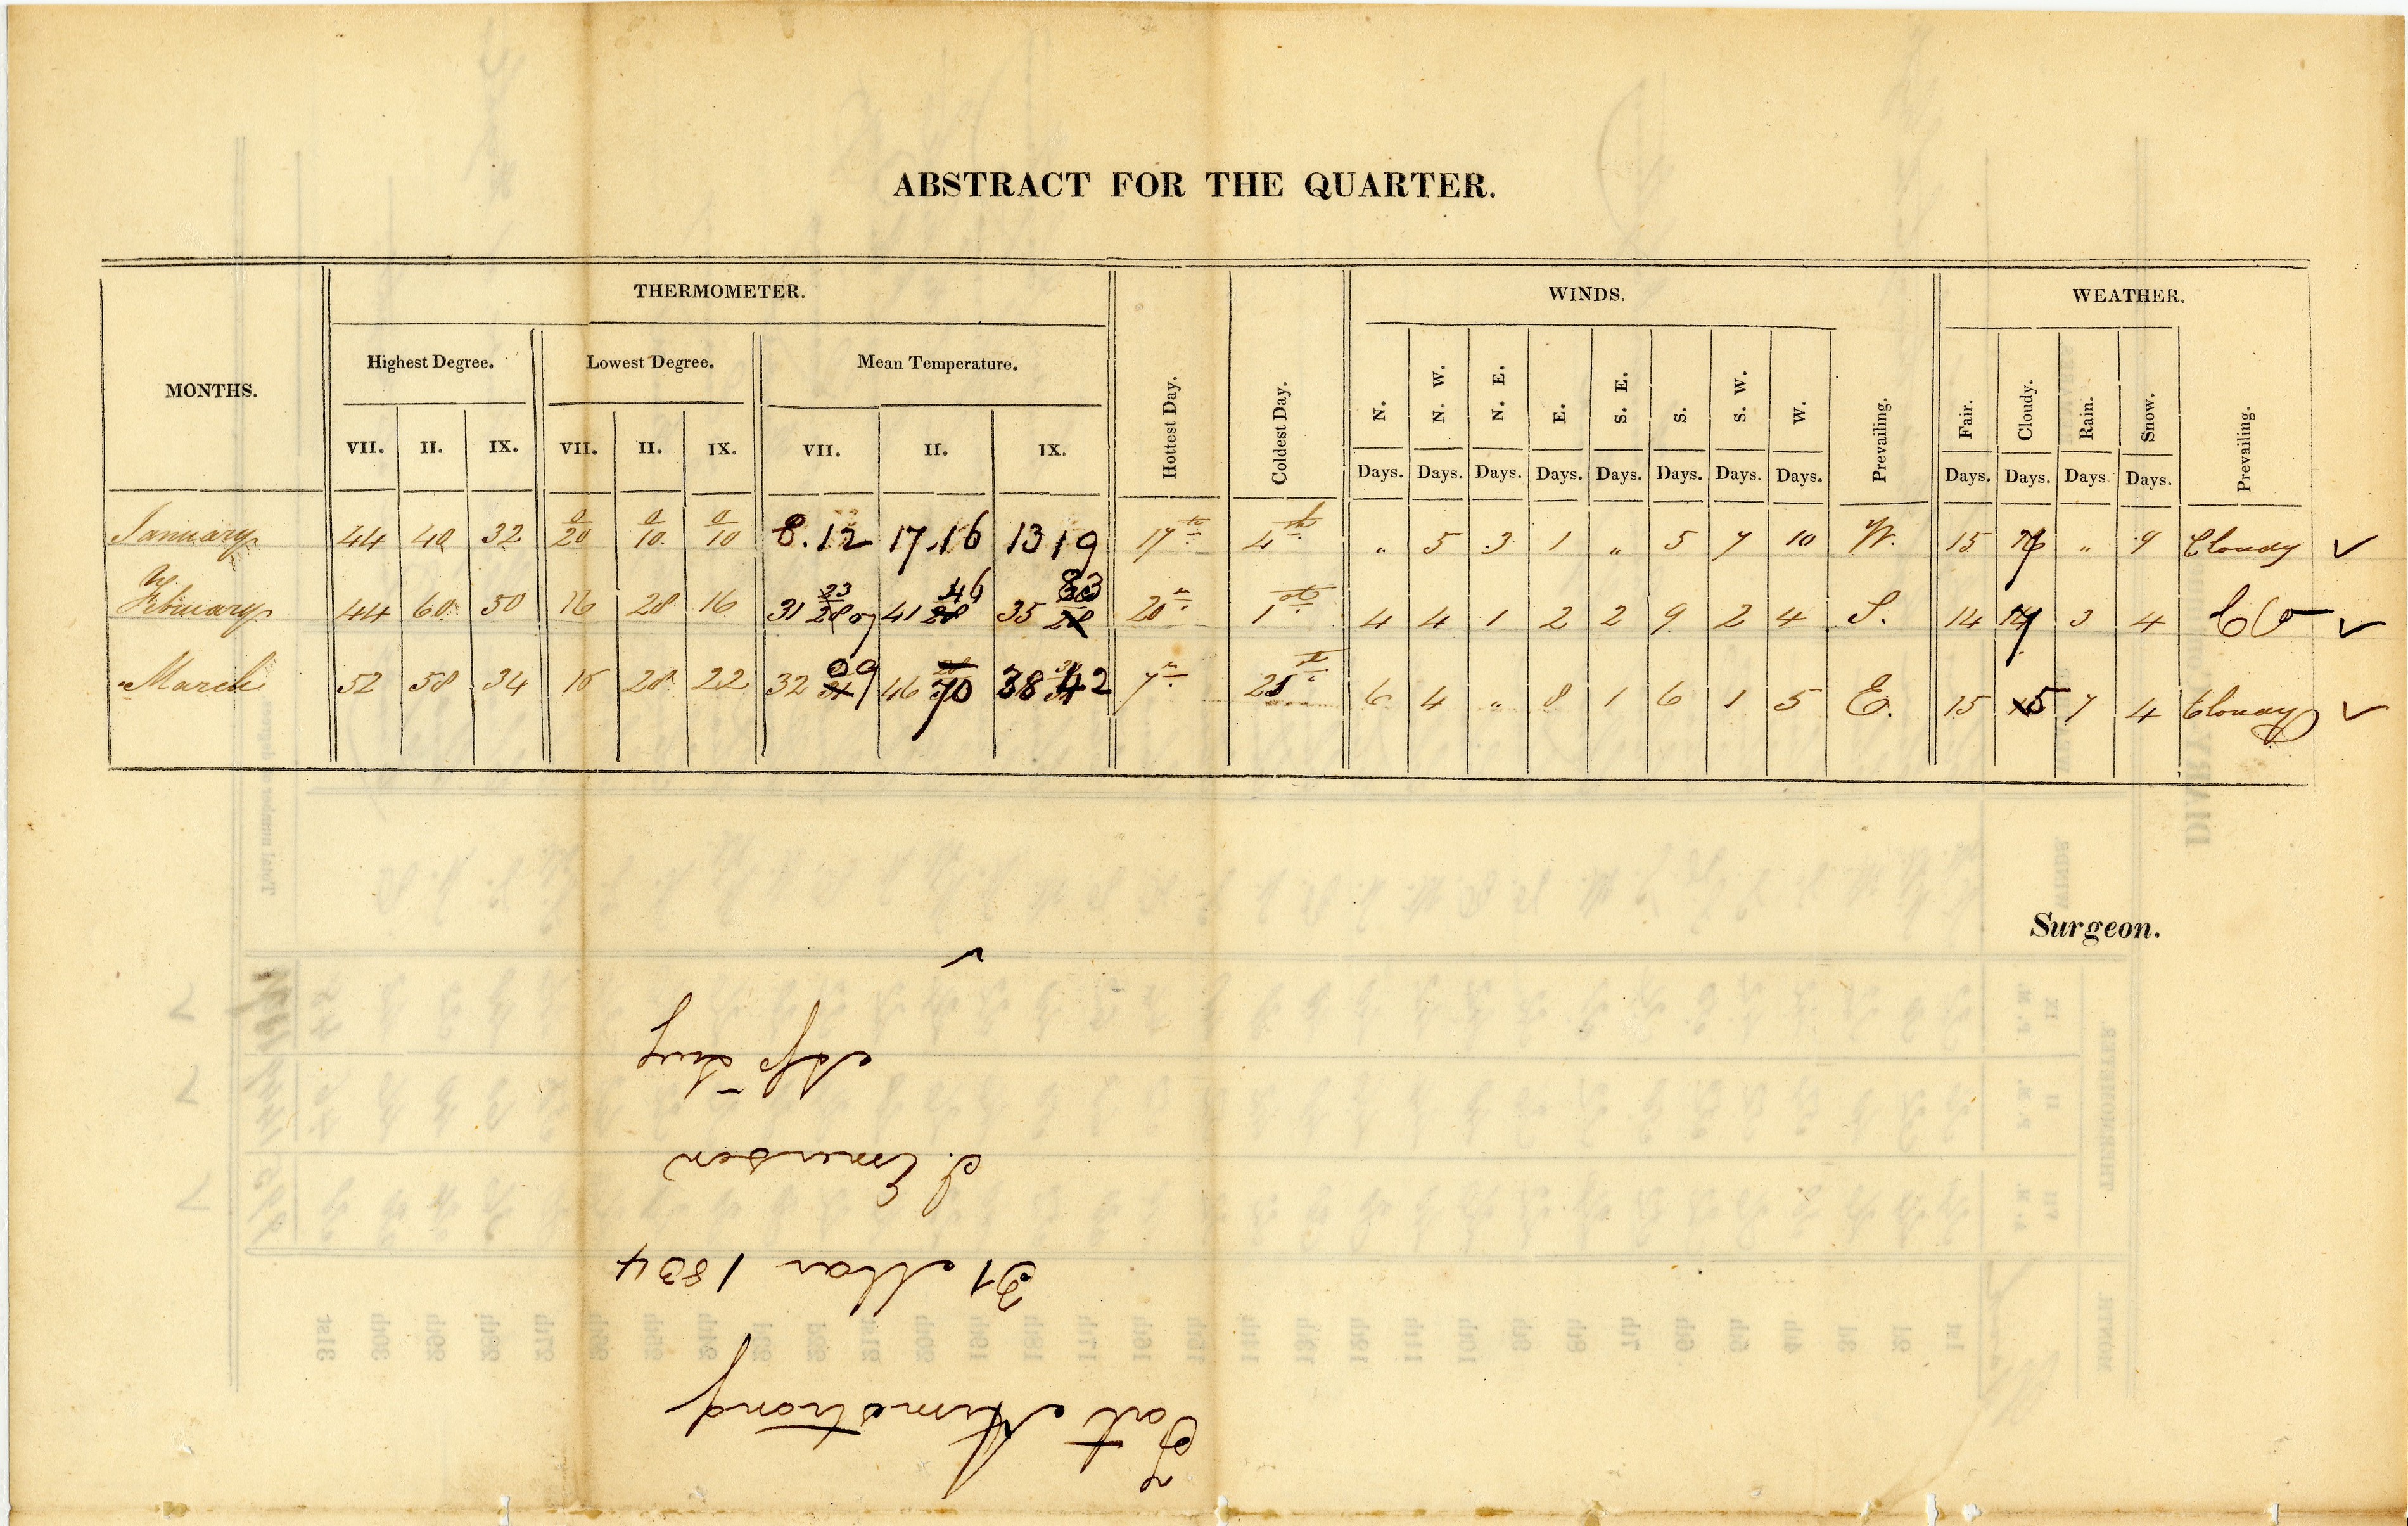 ABSTRACT FOR THE QUARTER.
MONTHS. THERMOMETER. Hottest Day. Coldest Day. WINDS. WEATHER.
Highest Degree. Lowest Degree. Mean Temperature. N. N. W. N. E. E. S. E. S. S. W. W. Prevailing. Fair. Cloudy. Rain. Snow. Prevailing.
VII. II. IX. VII. II. IX. VII. II. IX. Days. Days. Days. Days. Days. Days. Days. Days. Days. Days. Days Days.
January 44 40 32 0/20 0/10 0/10 8.12 17.16 13 19 17th 4th " 5 3 1 " 5 7 10 W. 15 7 " 9 Cloudy ✓
February 44 60 50 16 28 16 31 41 46 35 20th 1st 4 4 1 2 2 9 2 4 S. 14 7 3 4 ✓
March 52 58 34 28 22 32 09 46 70 38 42 7th 6 4 " 8 1 6 1 5 E. 15 5 7 4 Cloudy ✓
Surgeon.
Fort Armstrong
31 Mar 1834
J. Emerson
Asst Surg
✓